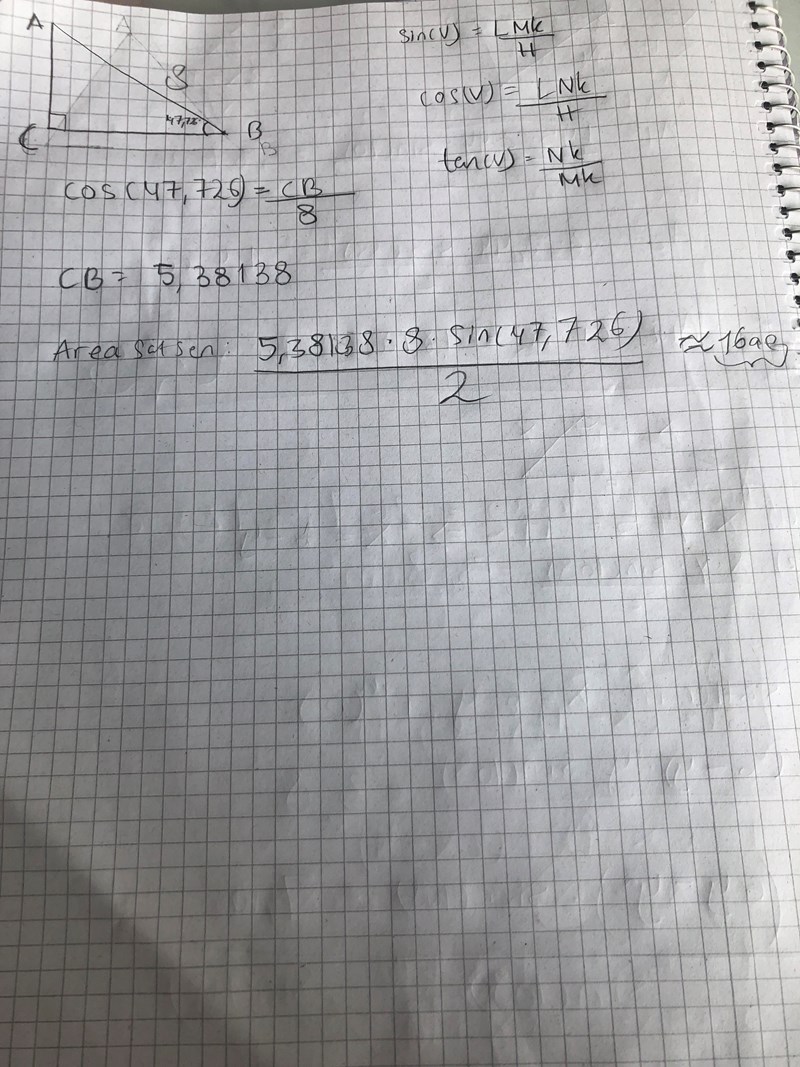 A
A
8
47,726
C
B
B
sin(v) = LMk/H
cos(v) = LNk/H
tan(v) = Nk/Mk
cos(47,726) = CB/8
CB = 5,38138
Area satsen: 5,38138 · 8 · sin(47,726)/2 ≈ 16ae